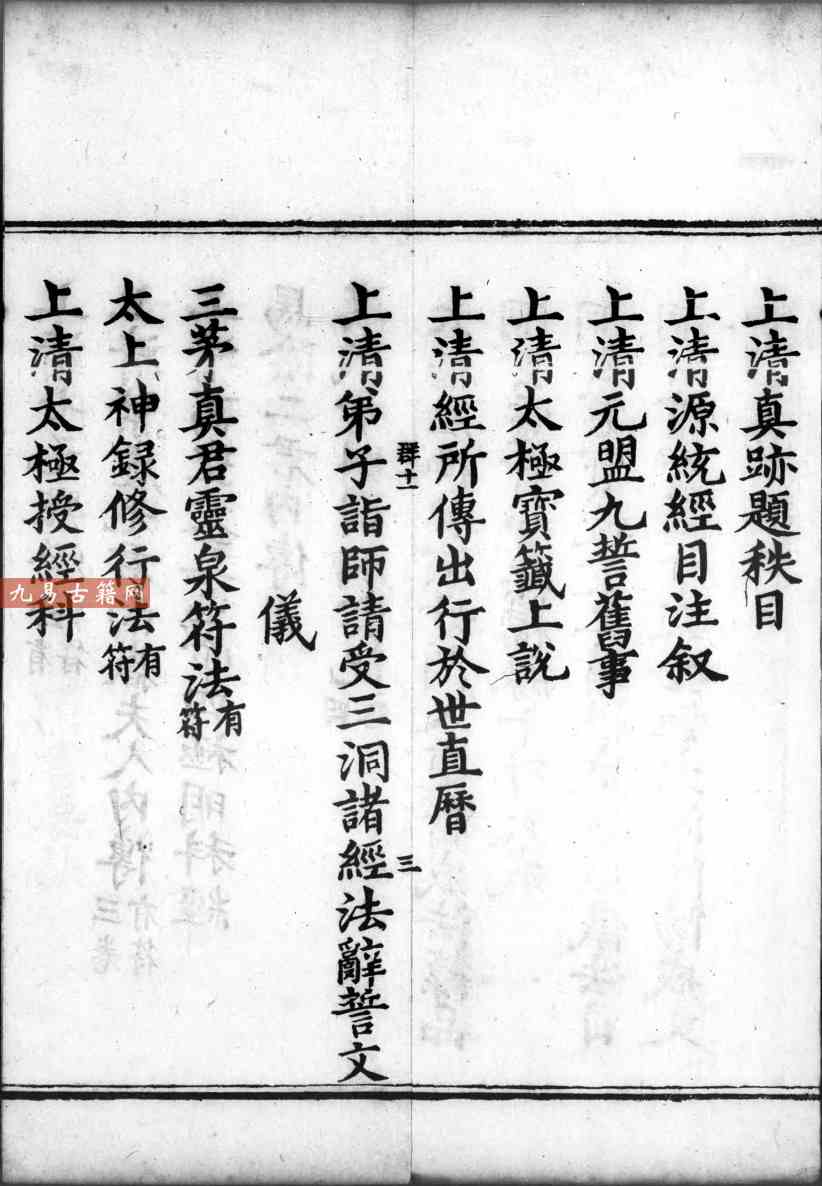 上清真跡題秩目
上清源統經目注叙
上清元盟九誓舊事
上清太極寶籤上說
上清經所傳出行於世直曆
群十一
三
上清弟子詣師請受三洞諸經法辭誓文
儀
三茅真君靈泉符法有符
太上神録修行法有符
上清太極授經科
九易古籍网